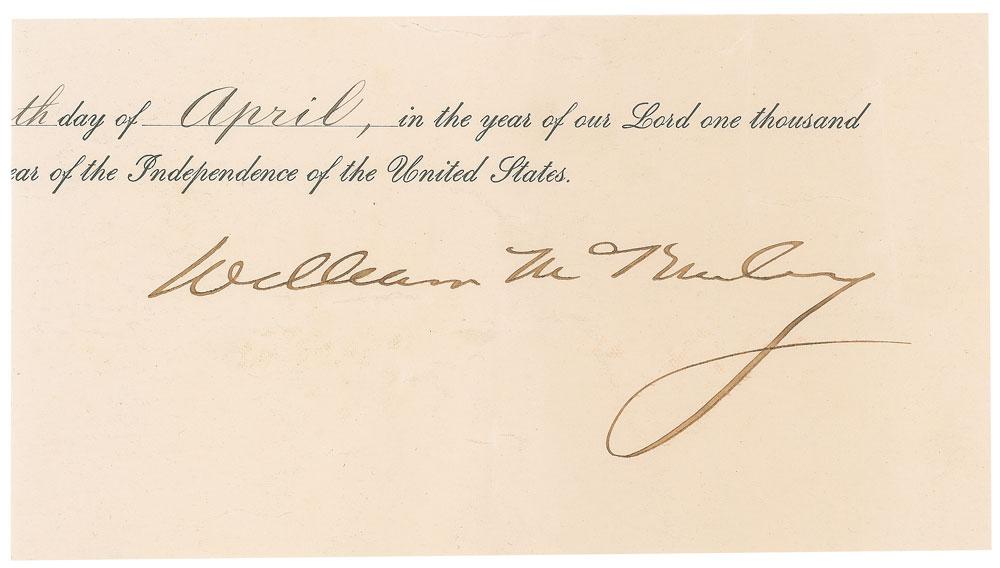 th day of April, in the year of our Lord one thousand
ear of the Independence of the United States.
William McKinley